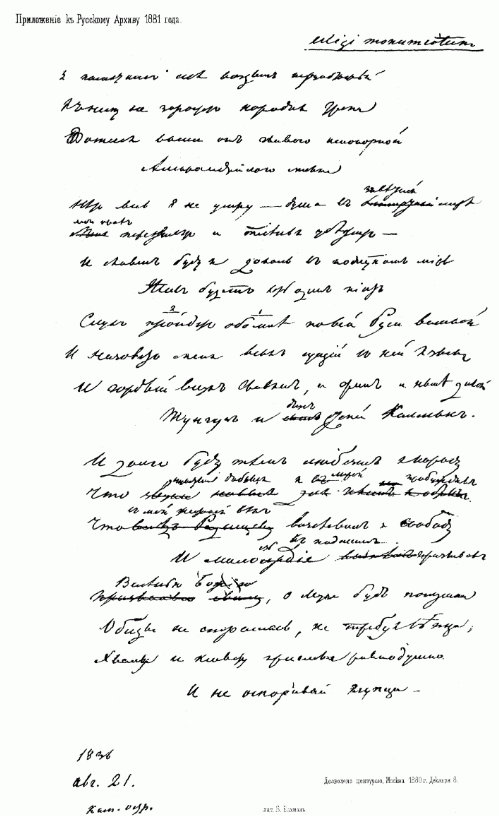 Приложеніе къ Русскому Архиву 1881 года.
Exegi monumentum
Я памятникъ себѣ воздвигъ нерукотворный
Къ нему не зарастетъ народная тропа
Вознесся выше онъ главою непокорной
Александрійскаго столпа
Нѣтъ весь я не умру — душа въ завѣтной лирѣ
мой прахъ
переживетъ и тлѣнья убѣжитъ —
И славенъ буду я доколь въ подлунномъ мірѣ
Живъ будетъ хоть одинъ піитъ
Слухъ пройдетъ обо мнѣ по всей Руси великой
И назоветъ меня всякъ сущій въ ней языкъ
И гордый внукъ Славянъ, и Финнъ и нынѣ дикой
Тунгузъ и другъ степей Калмыкъ.
И долго буду тѣмъ любезенъ я народу
Что звуки новые для пѣсенъ я обрѣлъ
чувства добрыя я лирой пробуждалъ
въ мой жестокій вѣкъ
Что вслѣдъ Радищеву возславилъ я свободу
къ падшимъ
И милосердіе призывалъ
Велѣнью Божію
о Муза будь послушна
Обиды не страшась, не требуя вѣнца;
Хвалу и клевету пріемли равнодушно
И не оспоривай глупца —
1836
авг. 21.
Кам. остр.
Дозволено цензурою, Москва 1880 г. Декабря 8.